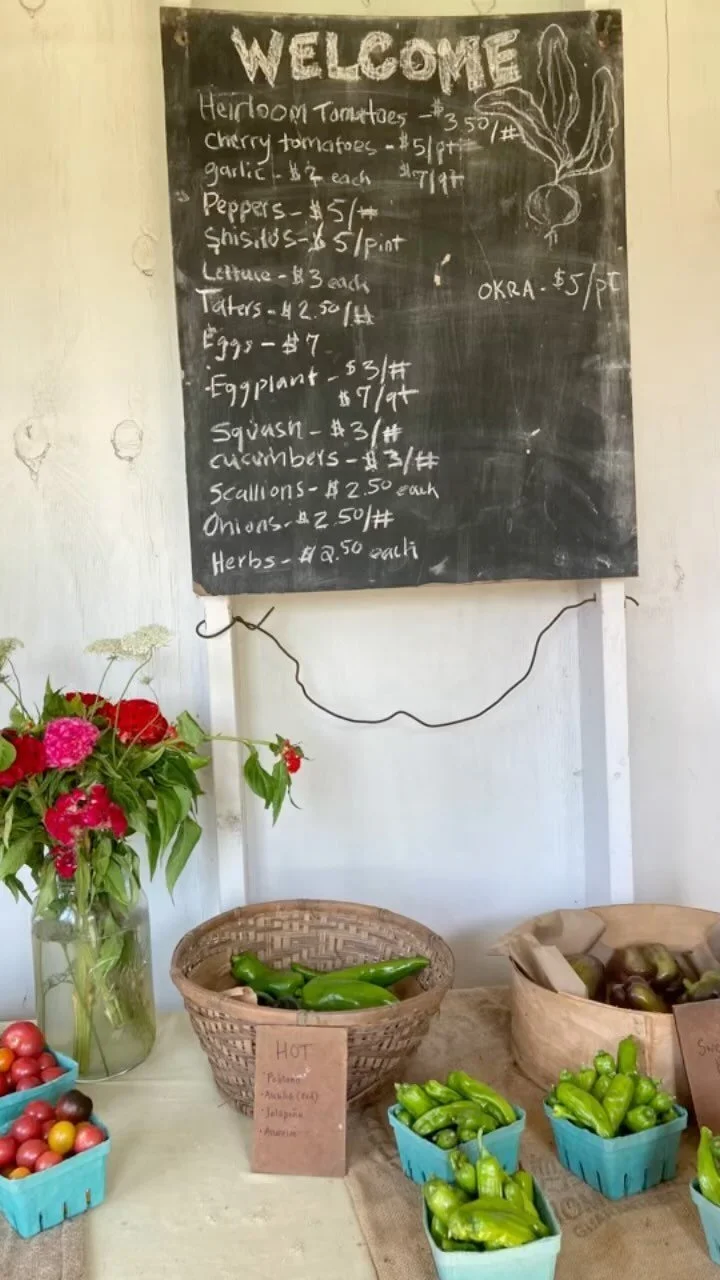 WELCOME
Heirloom Tomatoes - $3.50/#
cherry tomatoes - $5/pt
garlic - $2 each $7/qt
Peppers - $5/#
Shisitos - $5/pint
Lettuce - $3 each
OKRA - $5/pt
Taters - $2.50/#
Eggs - $7
Eggplant - $3/#
$7/qt
Squash - $3/#
cucumbers - $3/#
Scallions - $2.50 each
Onions - $2.50/#
Herbs - $2.50 each
HOT
· Poblano
· Jalapeño